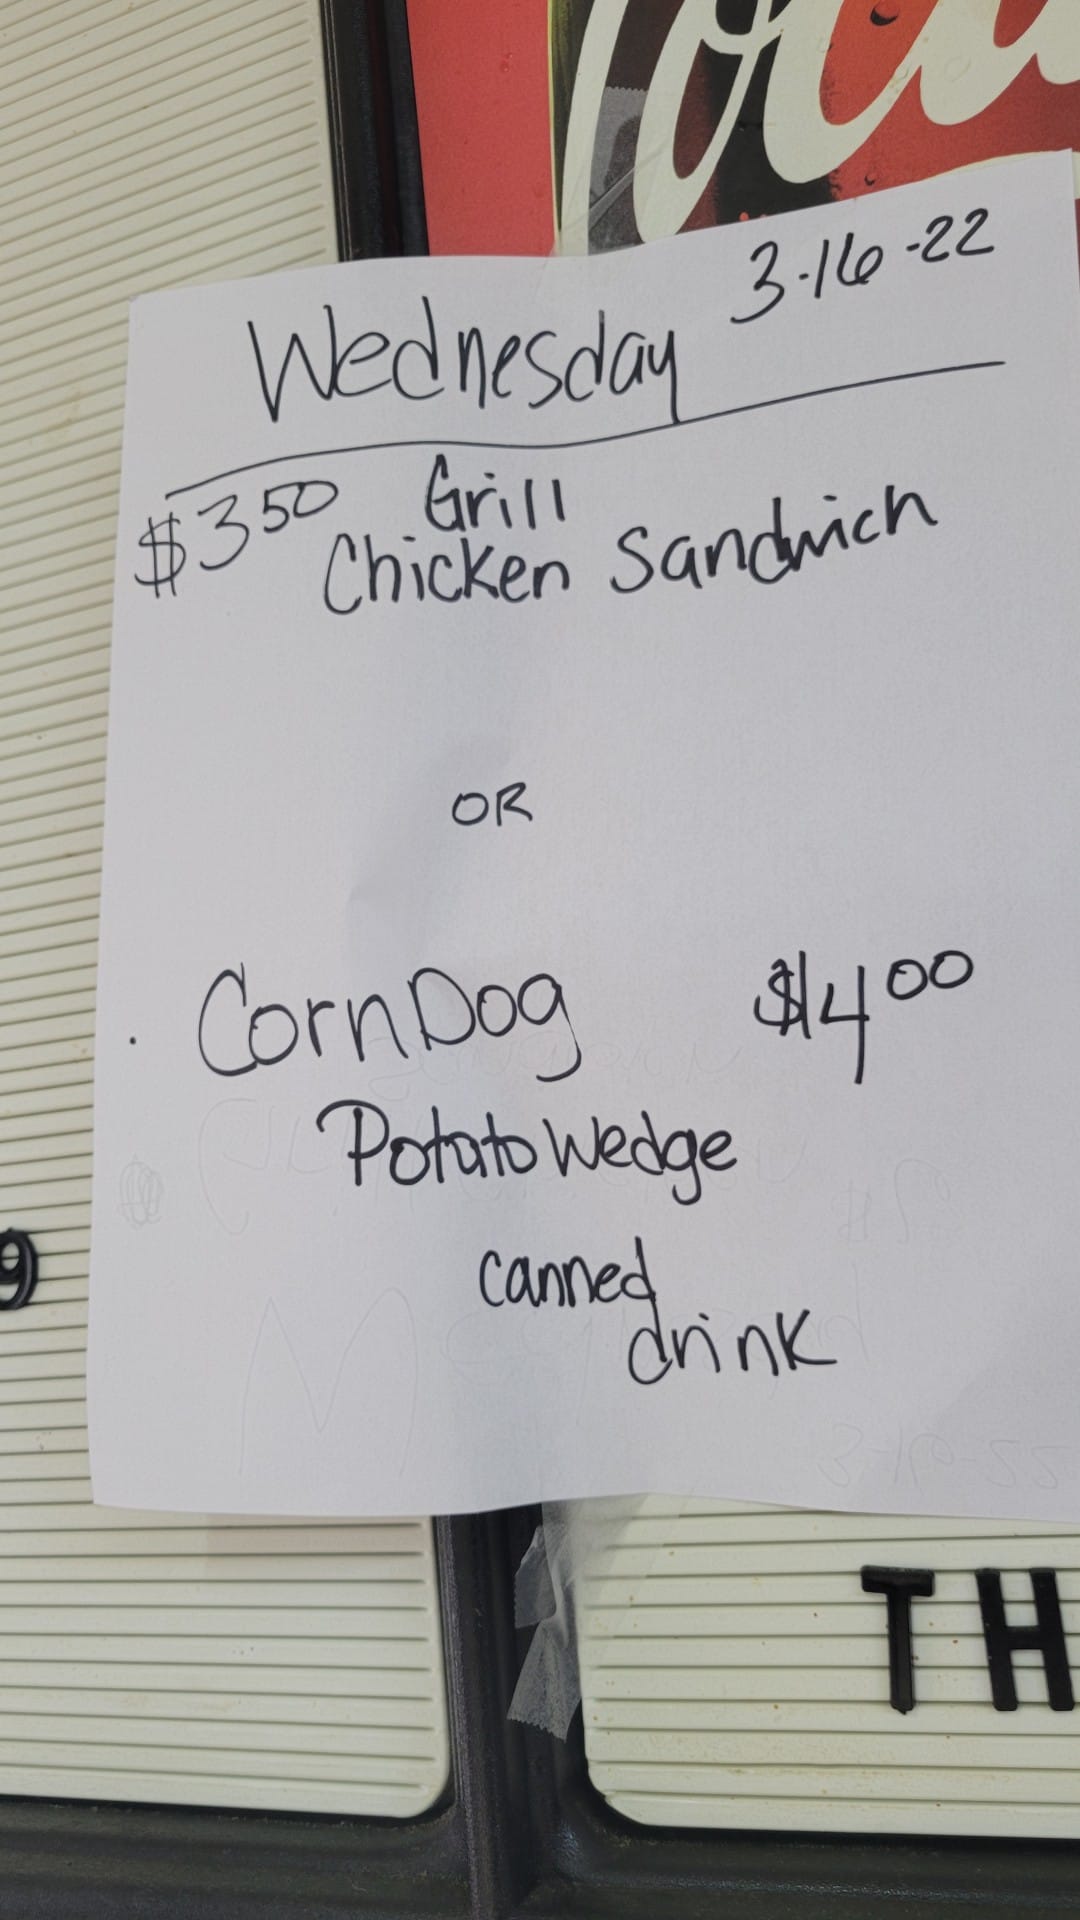 3-16-22
Wednesday
$3.50 Grill
Chicken Sandwich
OR
Corn Dog $4.00
Potato Wedge
canned
drink
9
TH